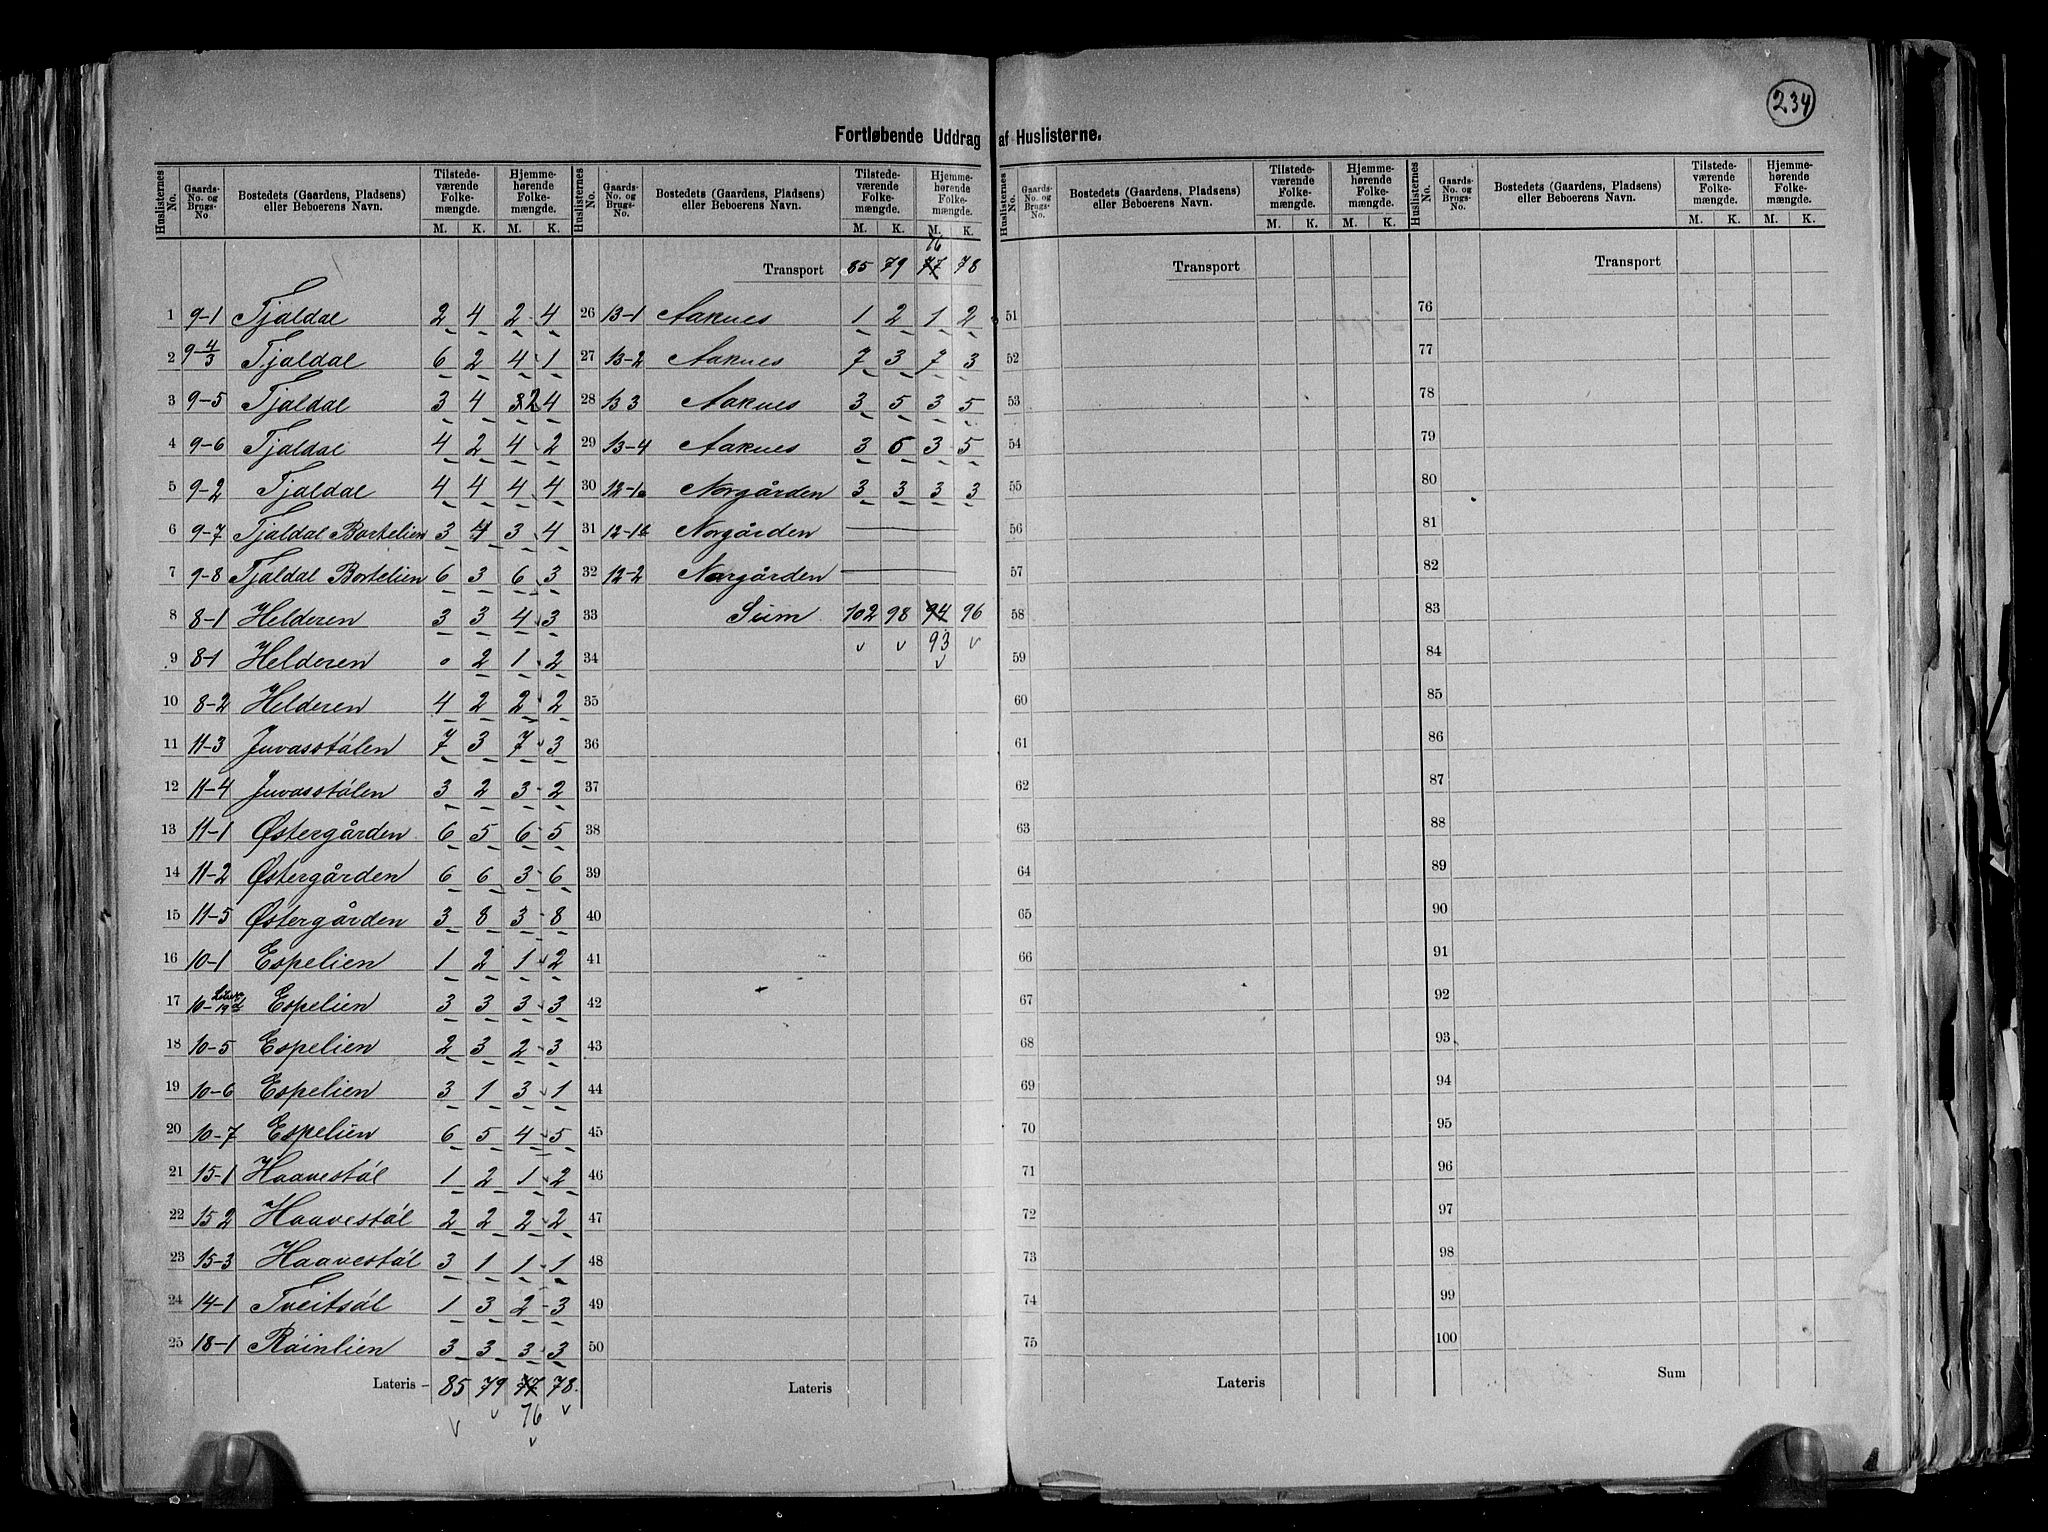 234
Fortløbende Uddrag af Huslisterne.
Huslisternes No. | Gaards-No. og Brugs-No. | Bostedets (Gaardens, Pladsens) eller Beboerens Navn. | Tilstedeværende Folkemængde. M. K. | Hjemmehørende Folkemængde. M. K.
1 9-1 Tjaldal 2 4 2 4
2 9-4/3 Tjaldal 6 2 4 1
3 9-5 Tjaldal 3 4 3 2 4
4 9-6 Tjaldal 4 2 4 2
5 9-2 Tjaldal 4 4 4 4
6 9-7 Tjaldal Bortelien 3 4 3 4
7 9-8 Tjaldal Bortelien 6 3 6 3
8 8-1 Helderen 3 3 4 3
9 8-1 Helderen 0 2 1 2
10 8-2 Helderen 4 2 2 2
11 11-3 Juvasstølen 7 3 7 3
12 11-4 Juvasstølen 3 2 3 2
13 11-1 Østergården 6 5 6 5
14 11-2 Østergården 6 6 3 6
15 11-5 Østergården 3 8 3 8
16 10-1 Espelien 1 2 1 2
17 10- Espelien 3 3 3 3
18 10-5 Espelien 2 3 2 3
19 10-6 Espelien 3 1 3 1
20 10-7 Espelien 6 5 4 5
21 15-1 Haavestøl 1 2 1 2
22 15 2 Haavestøl 2 2 2 2
23 15-3 Haavestøl 3 1 1 1
24 14-1 Tveitsøl 1 3 2 3
25 18-1 Røinlien 3 3 3 3
Lateris 85 79 77 78.
76
Huslisternes No. | Gaards-No. og Brugs-No. | Bostedets (Gaardens, Pladsens) eller Beboerens Navn. | Tilstedeværende Folkemængde. M. K. | Hjemmehørende Folkemængde. M. K.
76
Transport 85 79 77 78
26 13-1 Aaknes 1 2 1 2
27 13-2 Aaknes 7 3 7 3
28 13 3 Aaknes 3 5 3 5
29 13-4 Aaknes 3 6 3 5
30 12-1a Norgården 3 3 3 3
31 12-1b Norgården
32 12-2 Norgården
33 Sum 102 98 94 96
93
34
35
36
37
38
39
40
41
42
43
44
45
46
47
48
49
50
Lateris
Huslisternes No. | Gaards-No. og Brugs-No. | Bostedets (Gaardens, Pladsens) eller Beboerens Navn. | Tilstedeværende Folkemængde. M. K. | Hjemmehørende Folkemængde. M. K.
Transport
51
52
53
54
55
56
57
58
59
60
61
62
63
64
65
66
67
68
69
70
71
72
73
74
75
Lateris
Huslisternes No. | Gaards-No. og Brugs-No. | Bostedets (Gaardens, Pladsens) eller Beboerens Navn. | Tilstedeværende Folkemængde. M. K. | Hjemmehørende Folkemængde. M. K.
Transport
76
77
78
79
80
81
82
83
84
85
86
87
88
89
90
91
92
93
94
95
96
97
98
99
100
Sum